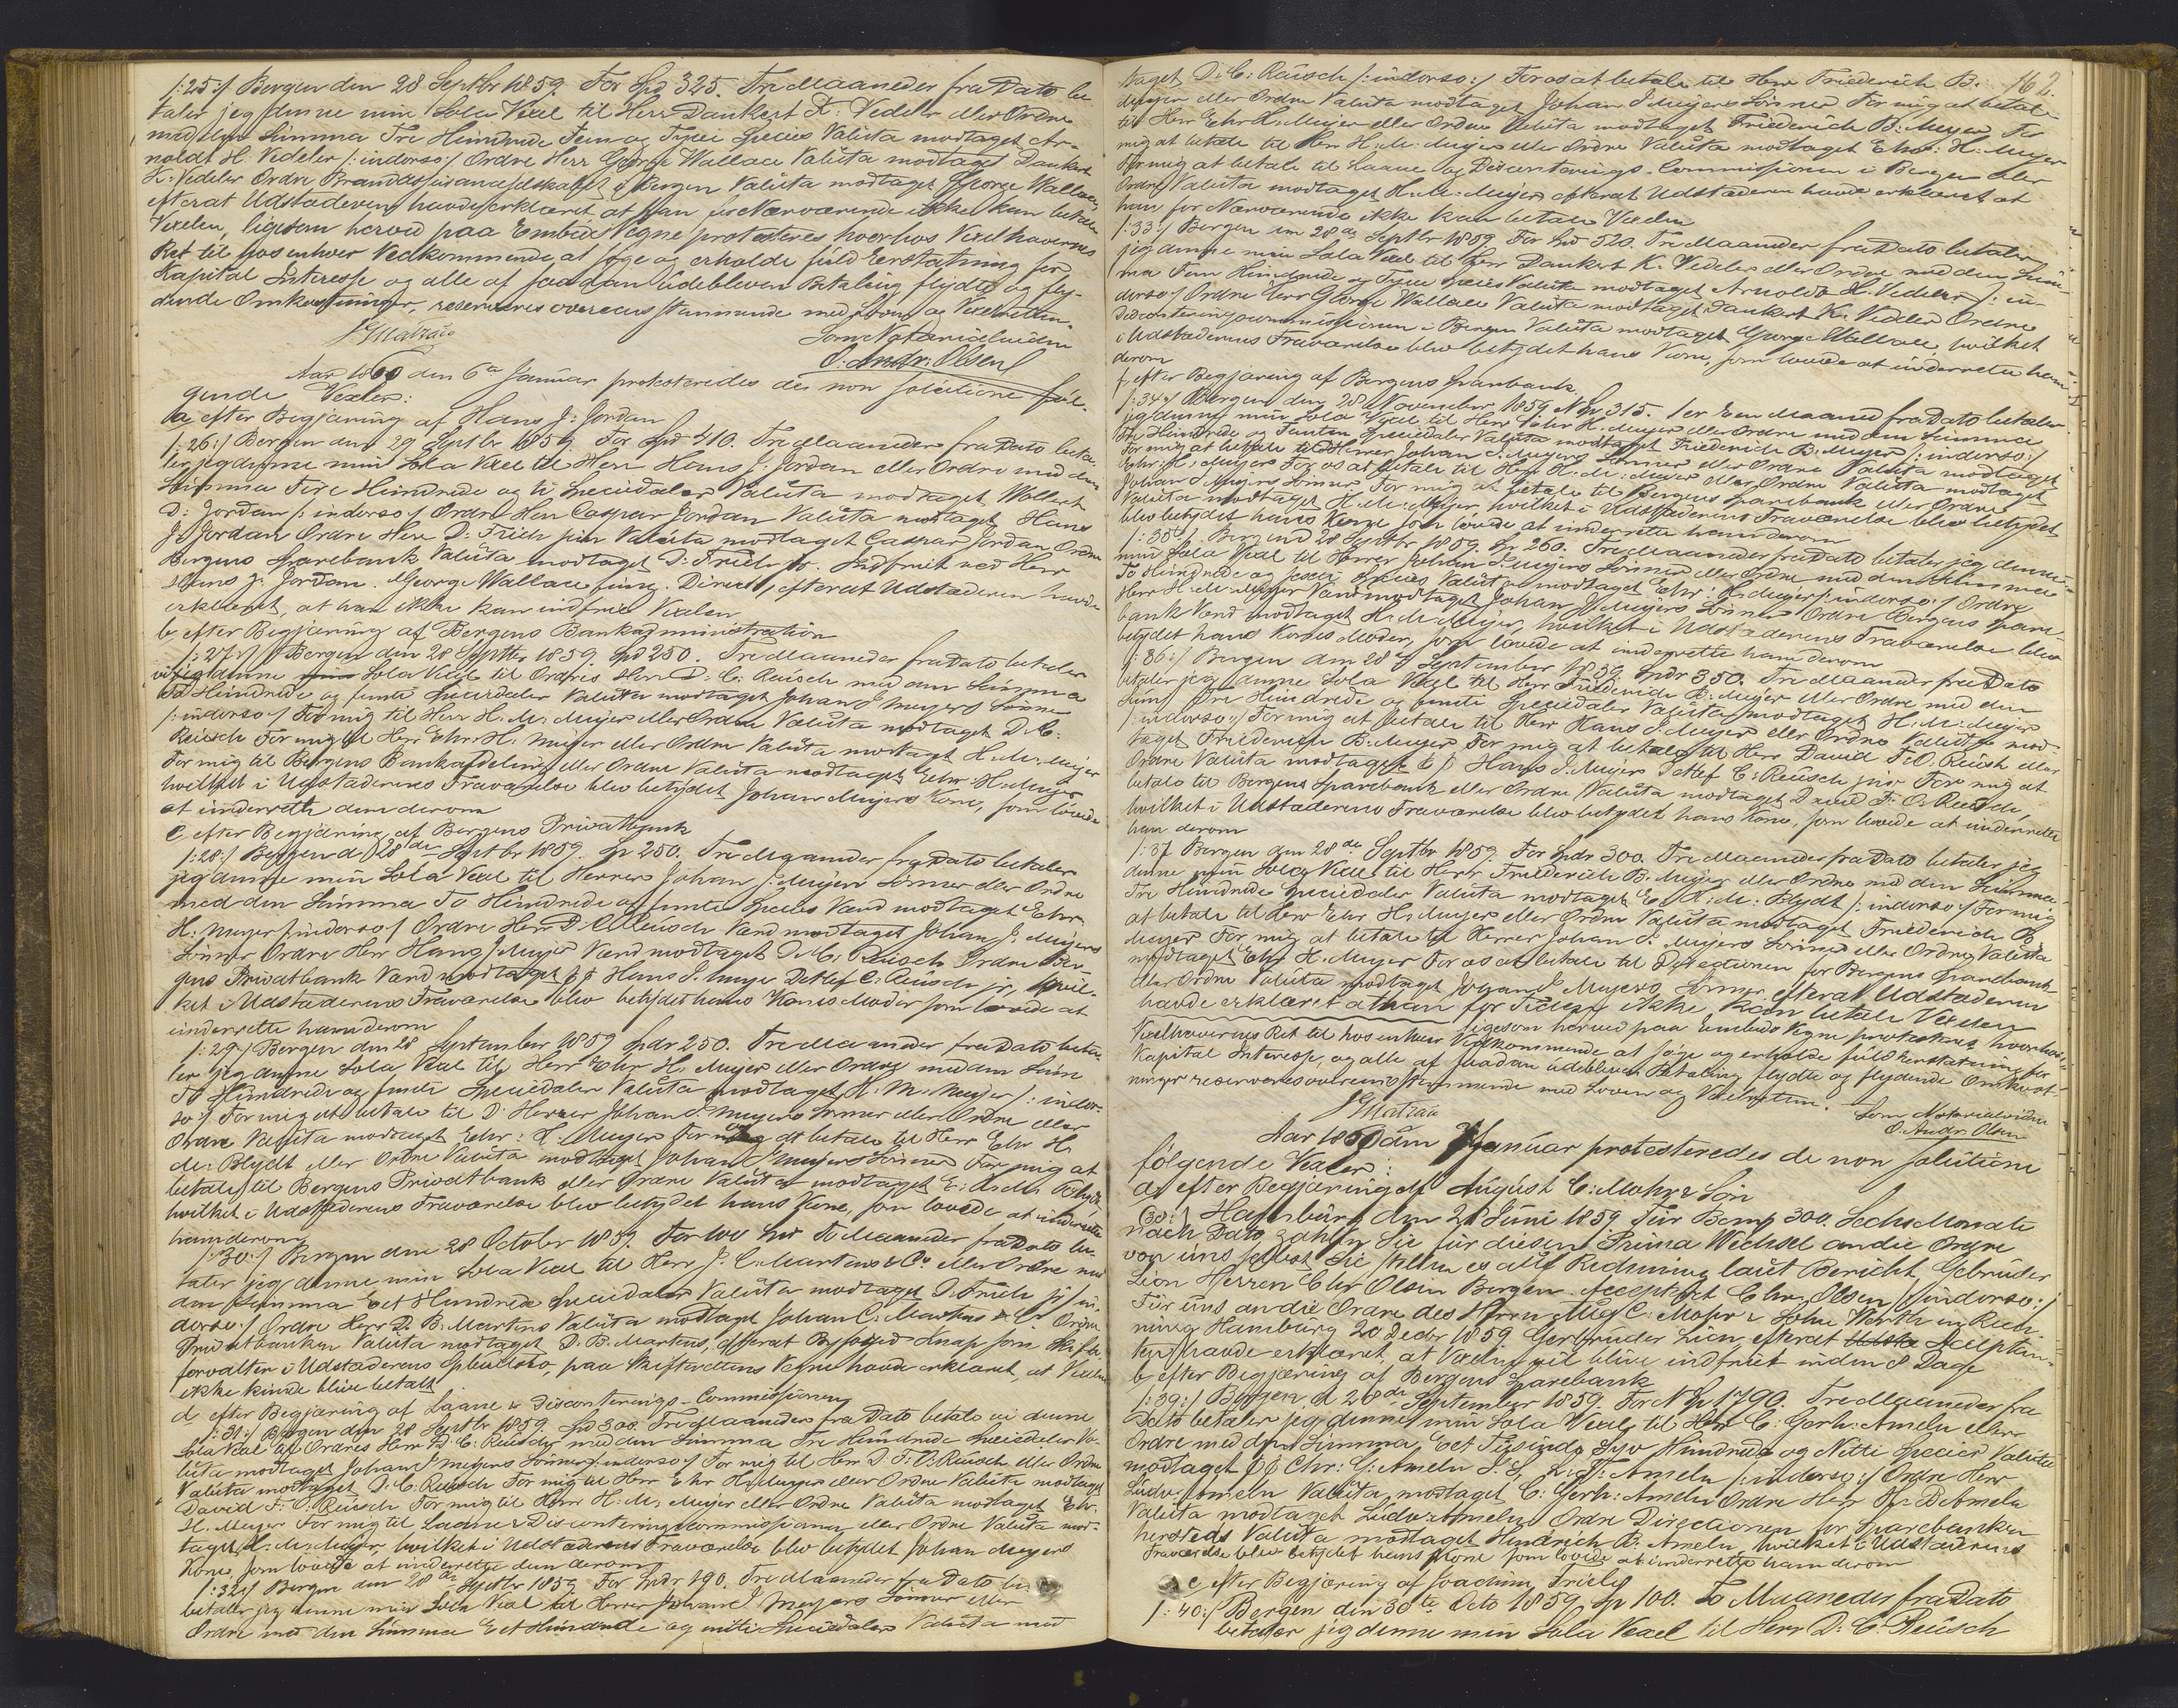 /:25:/ Bergen den 28 Septbr 1859 For Spd 325. Tre Maaneder fra Dato be
taler jeg denne min Sola Vexel til Herr Dankert K: Vedeler eller Ordre
med den Summa Tre Hundrede Fem og Tyve Species Valuta modtaget Ar-
noldt H. Vedeler /:indorso:/ Ordre Herr George Wallace Valuta modtaget Dankert
K: Vedeler Ordre Brandassuranceselskabet i Bergen Valuta modtaget George Wallace,
efterat Udstederen havde erklæret, at han for Nærværende ikke kan betale
Vexelen, ligesom herved paa Embeds Vegne protesteres hvorhos Vexelhaverens
Ret til hos enhver Vedkommende at søge og erholde fuld Erstatning for
Kapital Interesse og alle af saadan udebleven Betaling flydte og fly-
dende Omkostninger, reserveres overeensstemmende med Loven og Vexelretten.
Som Notarialvidne
O. Andr. Olsen
Aar 1860 den 6te Januar protesteredes de non solutione føl-
gende Vexler:
a, efter Begjæring af Hans J: Jordan
/:26:/ Bergen den 29 Septbr 1859 For Spd 410. Tre Maaneder fra Dato beta-
ler jeg denne min Sola Vexel til Herr Hans J: Jordan eller Ordre med den
Summa Fire Hundrede og ti Speciedaler Valuta modtaget Wollert
D: Jordan /:indorso:/ Ordre Herr Caspar Jordan Valuta modtaget Hans
J: Jordan Ordre Herr D: Friele jun Valuta modtaget Caspar Jordan Ordre
Bergens Sparebank Valuta modtaget D: Friele jr. Indfriet ved Herr
Hans J: Jordan. George Wallace fung. Direct, efterat Udstederen havde
erklæret, at han ikke kan indfrie Vexelen
b, efter Begjæring af Bergens Bankadministration
/:27:/ Bergen den 28 Septbr 1859. Spd 250. Tre Maaneder fra Dato betaler
vi denne Sola Vexel til Ordres Herr D: C: Reusch med den Summa
To Hundrede og femti Speciedaler Valuta modtaget Johan J Meyers Sønner
/:indorso:/ For mig til Herr H: M: Meyer eller Ordre Valuta modtaget D. C:
Reusch For mig til Herr Ehr: H. Meyer eller Ordre Valuta modtaget H. M. Meyer
For mig til Bergens Bankafdeling eller Ordre Valuta modtaget Ehr: H. Meyer
hvilket i Udstederens Fraværelse blev betydet Johan Meyers Kone, som lovede
at underrette dem derom
c efter Begjæring af Bergens Privatbank
/:28:/ Bergen d 28de Septbr 1859. Sp 250. Tre Maaneder fra Dato betaler
jeg denne min Sola Vexel til Herrer Johan J: Meyers Sønner eller Ordre
med den Summa To Hundrede og femti Species Værd modtaget Ehr
H: Meyer /:indorso:/ Ordre Herr D: C: Reusch Værd modtaget Johan J. Meyers
Sønner Ordre Herr Hans J Meyer Værd modtaget D. C: Reusch Ordre Ber-
gens Privatbank Værd modtaget pp Hans J. Meyer Detlef C: Reusch jr, hvil-
ket i Udstederens Fraværelse blev betydet hans Kones Moder som lovede at
underrette ham derom
/:29:/ Bergen den 28 September 1859 Spdr 250. Tre Maaneder fra Dato beta-
ler jeg denne Sola Vexel til Herr Ehr H: Meyer eller Ordre med den Sum
To Hundrede og femti Speciedaler Valuta modtaget H. M. Meyer /:indor-
so:/ For mig at betale til D' Herrer Johan J. Meyers Sønner eller Ordre eller
Ordre Valuta modtaget Ehr: H. Meyer For os at betale til Herr Ehr H.
M: Blydt eller Ordre Valuta modtaget Johan J Meyers Sønner For mig at
betale til Bergens Privatbank eller Ordre Valuta modtaget E: H: M: Blydt,
hvilket i Udstederens Fraværelse blev betydet hans Kone, som lovede at underrette
ham derom
/:30:/ Bergen den 28 October 1859. For 100 Spd To Maaneder fra Dato be-
taler jeg denne min Sola Vexel til Herr J. C. Martens & Co eller Ordre med
den Summa Eet Hundrede Speciedaler Valuta modtaget D. Friele jr /:in-
dorso:/ Ordre Herr D. B. Martens Valuta modtaget Johan C. Martens & Co Ordre
Privatbanken Valuta modtaget D. B. Martens, efterat Byfoged Knap som Skifte-
forvalter i Udstederens Opbudsbo, paa Skifterettens Vegne havde erklæret, at Vexelen
ikke kunde blive betalt
d, efter Begjæring af Laane & Disconterings-Commissionen
/:31:/ Bergen den 28 Septbr 1859. Spd 300. Tre Maaneder fra Dato betale vi denne
Sola Vexel til Ordres Herr D. C: Reusch med den Summa Tre Hundrede Speciedaler Va-
luta modtaget Johan J Meyers Sønner /:indorso:/ For mig til Herr D. F. O: Reusch eller Ordre
Valuta modtaget D. C: Reusch For mig til Herr Ehr H. Meyer eller Ordre Valuta modtaget
David F: O: Reusch For mig til Herr H. M. Meyer eller Ordre Valuta modtaget Ehr.
H. Meyer For mig til Laane & Disconteringscommissionen eller Ordre Valuta mod-
taget H: M: Meyer, hvilket i Udstederens Fraværelse blev betydet Johan Meyers
Kone, som lovede at underrette dem derom
/:32:/ Bergen den 28de Septbr 1859 For Spdr 190. Tre Maaneder fra Dato be
betaler jeg denne min Sola Vexel til Herrer Johan J Meyers Sønner eller
Ordre med den Summa Eet Hundrede og nitti Speciedaler Valuta mod
162.
taget D: C: Reusch /:indorso:/ For os at betale til Herr Friederich B:
Meyer eller Ordre Valuta modtaget Johan J Meyers Sønner For mig at betale
til Herr Ehr H. Meyer eller Ordre Valuta modtaget Friederich B: Meyer For
mig at betale til Herr H: M: Meyer eller Ordre Valuta modtaget Ehr: H: Meyer
For mig at betale til Laane og Disconterings-Commissionen i Bergen eller
Ordre Valuta modtaget H. M: Meyer, efterat Udstederen havde erklæret at
han for Nærværende ikke kan betale Vexelen
/:33:/ Bergen den 28de Septbr 1859. For Spd 520. Tre Maaneder fra Dato betaler
jeg denne min Sola Vexel til Herr Dankert K. Vedeler eller Ordre med den Sum-
ma Fem Hundrede og Tyve Species Valuta modtaget Arnoldt H. Vedeler /:in-
dorso:/ Ordre Herr George Wallace Valuta modtaget Dankert K. Vedeler Ordre
Disconteringscommissionen i Bergen Valuta modtaget George Wallace, hvilket
i Udstederens Fraværelse blev betydet hans Kone, som lovede at underrette ham
derom
f, efter Begjæring af Bergens Sparebank
/:34:/ Bergen den 28 November 1859 N Sp 315. 1 er Een Maaned fra Dato betaler
jeg denne min Sola Vexel til Herr Ehr H. Meyer eller Ordre med den Summa
Tre Hundrede og Femten Speciedaler Valuta modtaget Friederich B. Meyer /:indorso:/
For mig at betale til Herrer Johan J. Meyers Sønner eller Ordre Valuta modtaget
Ehr: H. Meyer For os at betale til Herr H. M: Meyer eller Ordre Valuta modtaget
Johan J Meyers Sønner For mig at betale til Bergens Sparebank eller Ordre
Valuta modtaget H. M. Meyer hvilket i Udstederens Fraværelse blev betydet
blev betydet hans Kone som lovede at underrette ham derom
/:35:/ Bergen d 28 Septbr 1859. Sp 260. Tre Maaneder fra Dato betaler jeg denne
min Sola Vexel til Herrer Johan J. Meyers Sønner eller Ordre med den Summa
To Hundrede og sexti Species Valuta modtaget Ehr: H. Meyer /:indorso:/ Ordre
Herr H. M. Meyer Værd modtaget Johan J Meyers Sønner Ordre Bergens Spare-
bank Værd modtaget H. M. Meyer, hvilket i Udstederens Fraværelse blev
betydet hans Kones Moder, som lovede at underrette ham derom
/:36:/ Bergen den 28de September 1859 Spdr 350. Tre Maaneder fra Dato
betaler jeg denne Sola Vexel til Herr Friederich B. Meyer eller Ordre med den
Sum Tre Hundrede og femti Speciedaler Valuta modtaget H. M: Meyer
/:indorso:/ For mig at betale til Herr Hans J. Meyer eller Ordre Valuta mod-
taget Friederich B. Meyer For mig at betale til Herr David F: O: Reusch eller
Ordre Valuta modtaget pp Hans J. Meyer Detlef C: Reusch jun For mig at
betale til Bergens Sparebank eller Ordre Valuta modtaget David F: O. Reusch,
hvilket i Udstederens Fraværelse blev betydet hans Kone, som lovede at underrette
ham derom
/:37 Bergen den 28de Septbr 1859. For Spdr 300. Tre Maaneder fra Dato betaler jeg
denne min Sola Vexel til Herr Friederich B. Meyer eller Ordre med den Summa
Tre Hundrede Speciedaler Valuta modtaget E. H: M: Blydt /:indorso:/ For mig
at betale til Herr Ehr H. Meyer eller Ordre Valuta modtaget Friederich B.
Meyer For mig at betale til Herrer Johan J. Meyers Sønner eller Ordre Valuta
modtaget Ehr H. Meyer For os at betale til Directionen for Bergens Sparebank
eller Ordre Valuta modtaget Johan J Meyers Sønner, efterat Udstederen
havde erklæret at han for Tiden ikke kan betale Vexelen
ligesom herved paa Embeds Vegne protesteres hvorhos
Vexelhaverens Ret til hos enhver Vedkommende at søge og erholde fuld Erstatning for
Kapital Interesse, og alle af saadan udebleven Betaling flydte og flydende Omkost-
ninger reserveres overeensstemmende med Loven og Vexelretten.
Som Notarialvidne
O. Andr. Olsen
Aar 1860 den Januar protesteredes de non solutione
følgende Vexler:
a, efter Begjæring af August C: Mohr & Søn
/:38:/ Hamburg den 28 Juni 1859 Für Bco 300. Sechs Monate
nach Dato zahlen Sie für diesen Prima Wechsel an die Ordre
von uns selbst Sie stellen es auf Rechnung laut Bericht. Gebrüder
Lion Herren Chr Olsen Bergen. Acceptirt Chr. Olsen /:indorso:/
Für uns an die Ordre des Herrn Aug C: Mohr & Sohn Werth in Rech-
nung Hamburg 20 Decbr 1859 Gerbrüder Lion, efterat Acceptan-
ten havde erklæret, at Vexelen vil blive indfriet inden 8 Dage
b, efter Begjæring af Bergens Sparebank
/:39:/ Bergen d 28de September 1859. For N Sp 1790. Tre Maaneder fra
Dato betaler jeg denne min Sola Vexel til Herr C: Gerh: Ameln eller
Ordre med den Summa Eet Tusinde Syv Hundrede og Nitti Species Valuta
modtaget pp Chr: G: Ameln L. F. Ameln /:indorso:/ Ordre Herr
Ludv: Ameln Valuta modtaget C: Gerh: Ameln Ordre Herr Hr. B Ameln
Valuta modtaget Ludv: Ameln Ordre Directionen for Sparebanken
hersteds Valuta modtaget Hindrich B: Ameln, hvilket i Udstederens
Fraværelse blev betydet hans Kone som lovede at underrette ham derom
c efter Begjæring af Joachim Friele
/:40:/ Bergen den 30te Octo 1859. Sp 100. To Maaneder fra Dato
betaler jeg denne min Sola Vexel til Herr D. C. Reusch